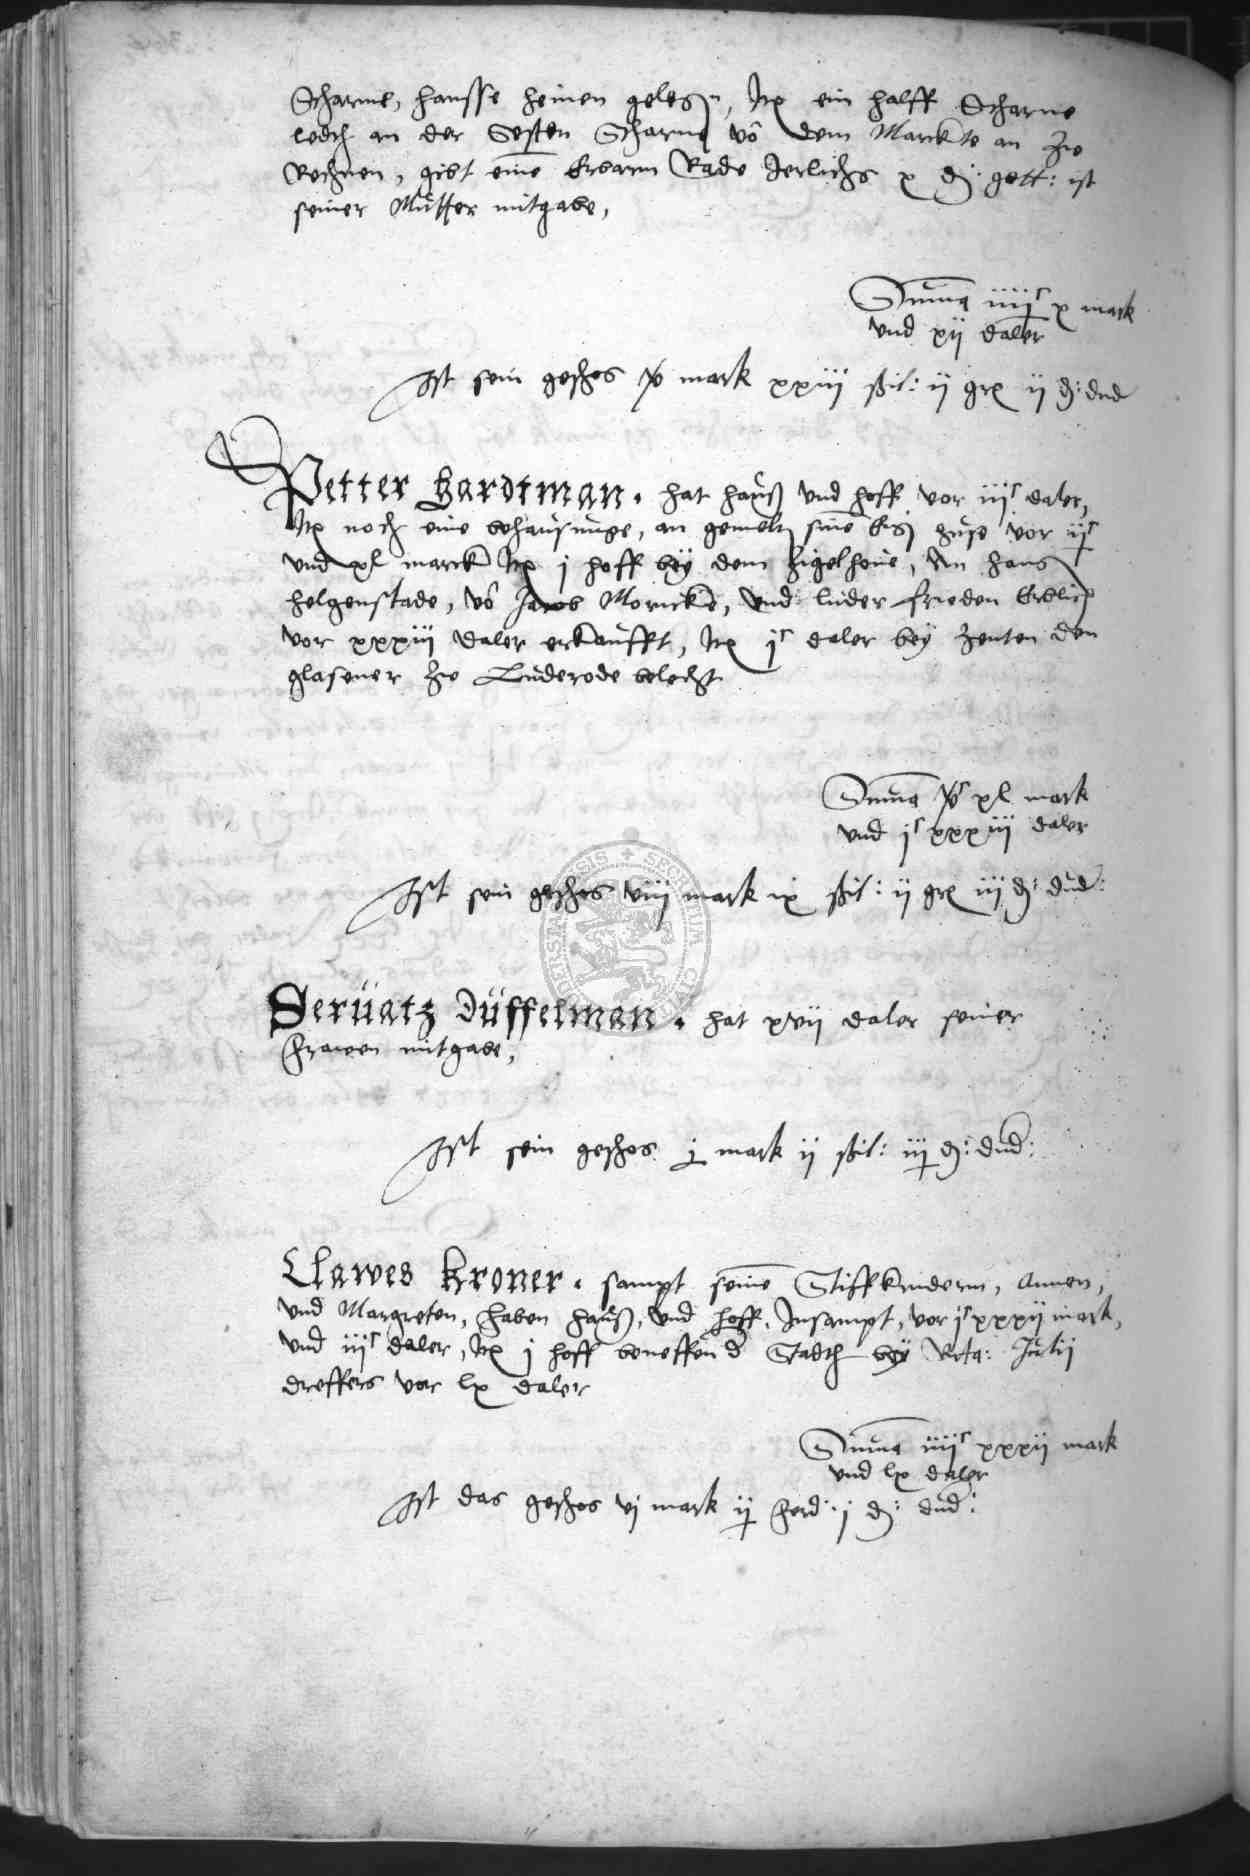 Scharne, hansse heinen gelegen, Itx ein halff Scharne
loch an der Sesten Scharne vo dem Marckte an zu
Rechnen, gibt eine Erbarn Rade Jerlichs x d: gott: ist
seiner Mutter mitgabe,
Suma iiiiC x mark
und xij daler
Ist sein geschos mark xxiii sßil: ij grx ij d: dnd
Petter Hardtman. hat hauß und hoff vor iiiC daler,
Itx noch eine behausunge, an sine huse vor
und xl marck Itx j hoff bey dem Zigelhoue, An hans
helgenstade, vo Jacob Moricke, und luder frieden Erblich
vor xxxiii daler erkaufft, Itx jC daler bey Zenten den
glasener zu Luderode belecht
Suma xl mark
und jC xxxiii daler
Ist sein geschos viii mark ix sßil: ij grx iii d: dnd:
Seruatz Düffelman. hat xvij daler seiner
frawen mitgabe,
Ist sein geschos j mark ij sßil: iij d: dnd:
Clawes Kroner. sampt seine Stiffkindern, Annen,
und Margreten, haben hauß, und hoff, Insampt, vor jC xxxij mark,
und iiiC daler, Itx j hoff beneffen d Stadth bey Julij
dreffers vor lx daler
Suma iiiiC xxxij mark
und lx daler
Ist das geschos vj mark ij ferd: j d: dnd:
SECRETUM CIVI